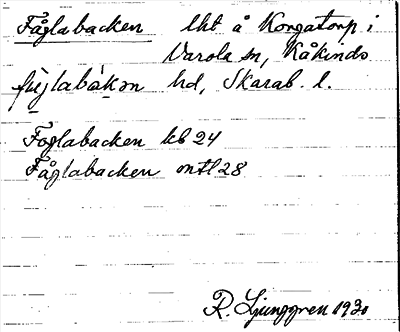 Fåglabacken lht å Korgatorp i
Varola sn, Kåkinds
fùǝjlabàkǝn hd, Skarab. l.
Foglabacken kb 24
Fåglabacken mtl 28
R. Ljunggren 1930